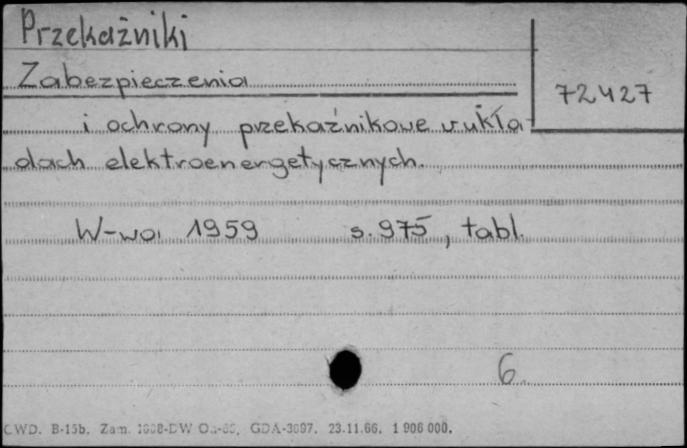 Przekaźniki
Zabezpieczenia
72427
i ochrony przekaźnikowe w ukła-
dach elektroenergetycznych.
W-wa 1959 s. 975, tabl.
6.
CWD. B-15b. Zam. GDA-3697. 23.11.66. 1 906 000.